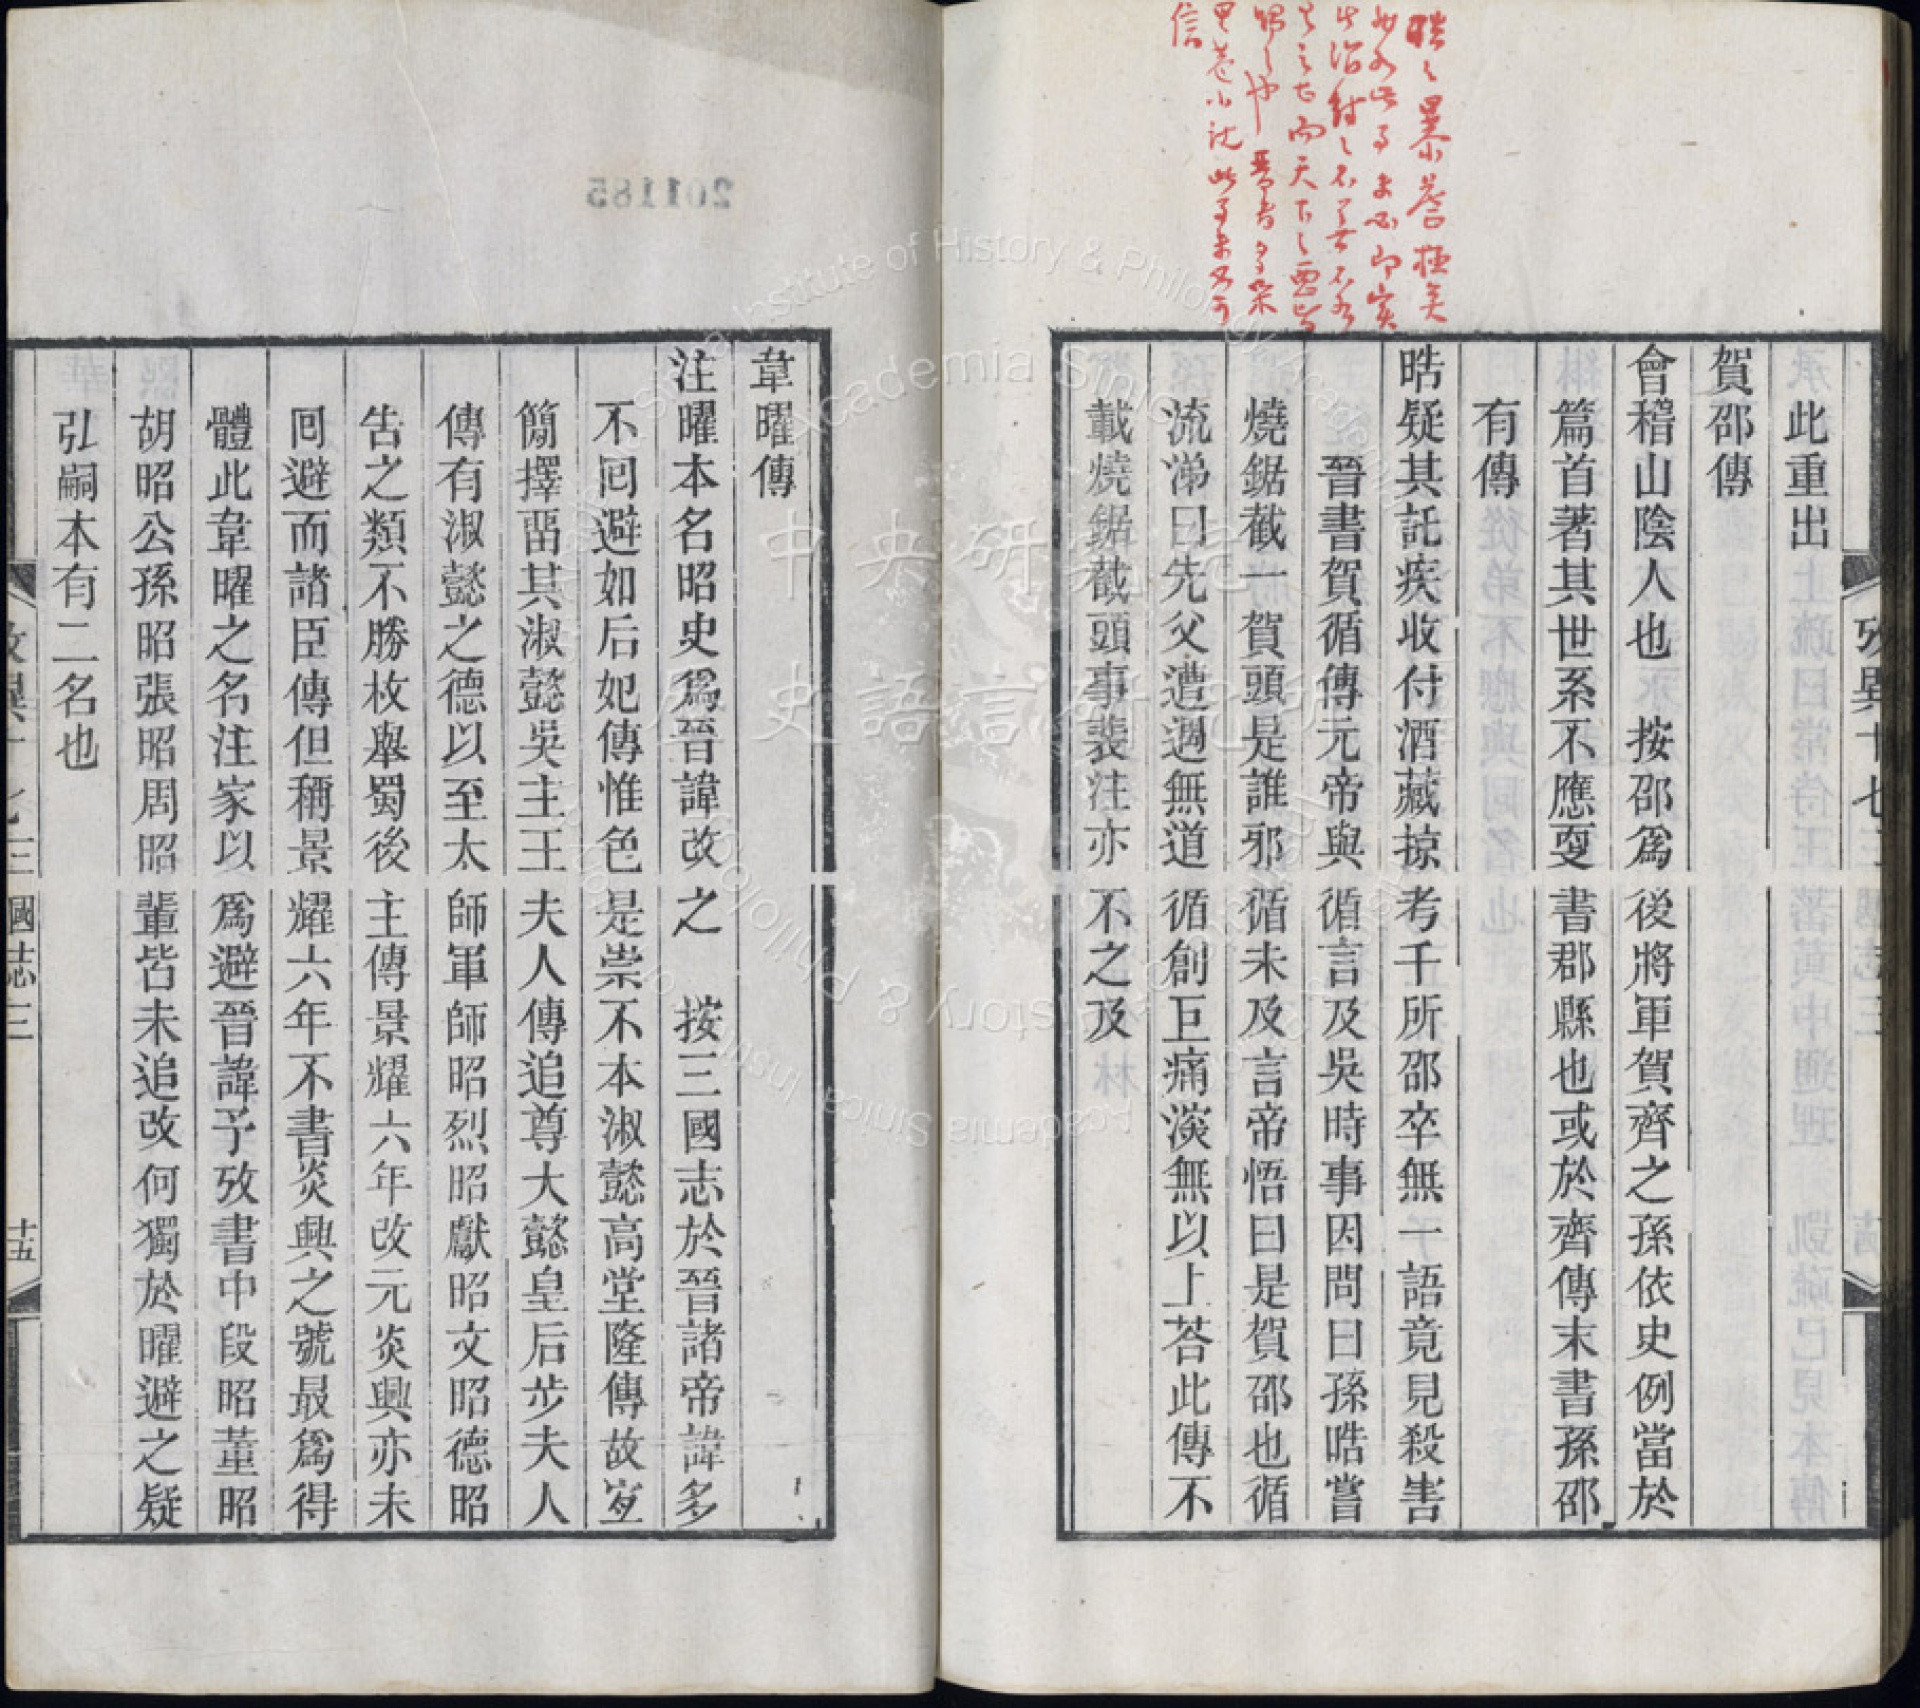 此重出
賀邵傳
會稽山陰人也　按邵爲後將軍賀齊之孫依史例當於
篇首著其世系不應夏書郡縣也或於齊傳末書孫邵
有傳
晧疑其託疾收付酒藏掠考千所邵卒無一語竟見殺害
晉書賀循傳元帝與循言及吳時事因問曰孫晧嘗
燒鋸截一賀頭是誰邪循未及言帝悟曰是賀邵也循
流涕曰先父遭遇無道循創巨痛湥無以上荅此傳不
載燒鋸截頭事裴注亦不之及
攷異十七　三國志三
韋曜傳
注曜本名昭史爲晉諱改之　按三國志於晉諸帝諱多
不囘避如后妃傳惟色是崇不本淑懿高堂隆傳故宐
簡擇畱其淑懿吳主王夫人傳追尊大懿皇后步夫人
傳有淑懿之德以至太師軍師昭烈昭獻昭文昭德昭
告之類不勝枚舉蜀後主傳景耀六年改元炎興亦未
囘避而諸臣傳但稱景耀六年不書炎興之號最爲得
體此韋曜之名注家以爲避晉諱予攷書中段昭董昭
胡昭公孫昭張昭周昭輩皆未追改何獨於曜避之疑
弘嗣本有二名也
攷異十七　三國志三　十五
201185
中央研究院
歷史語言研究所
Institute of History & Philology, Academia Sinica